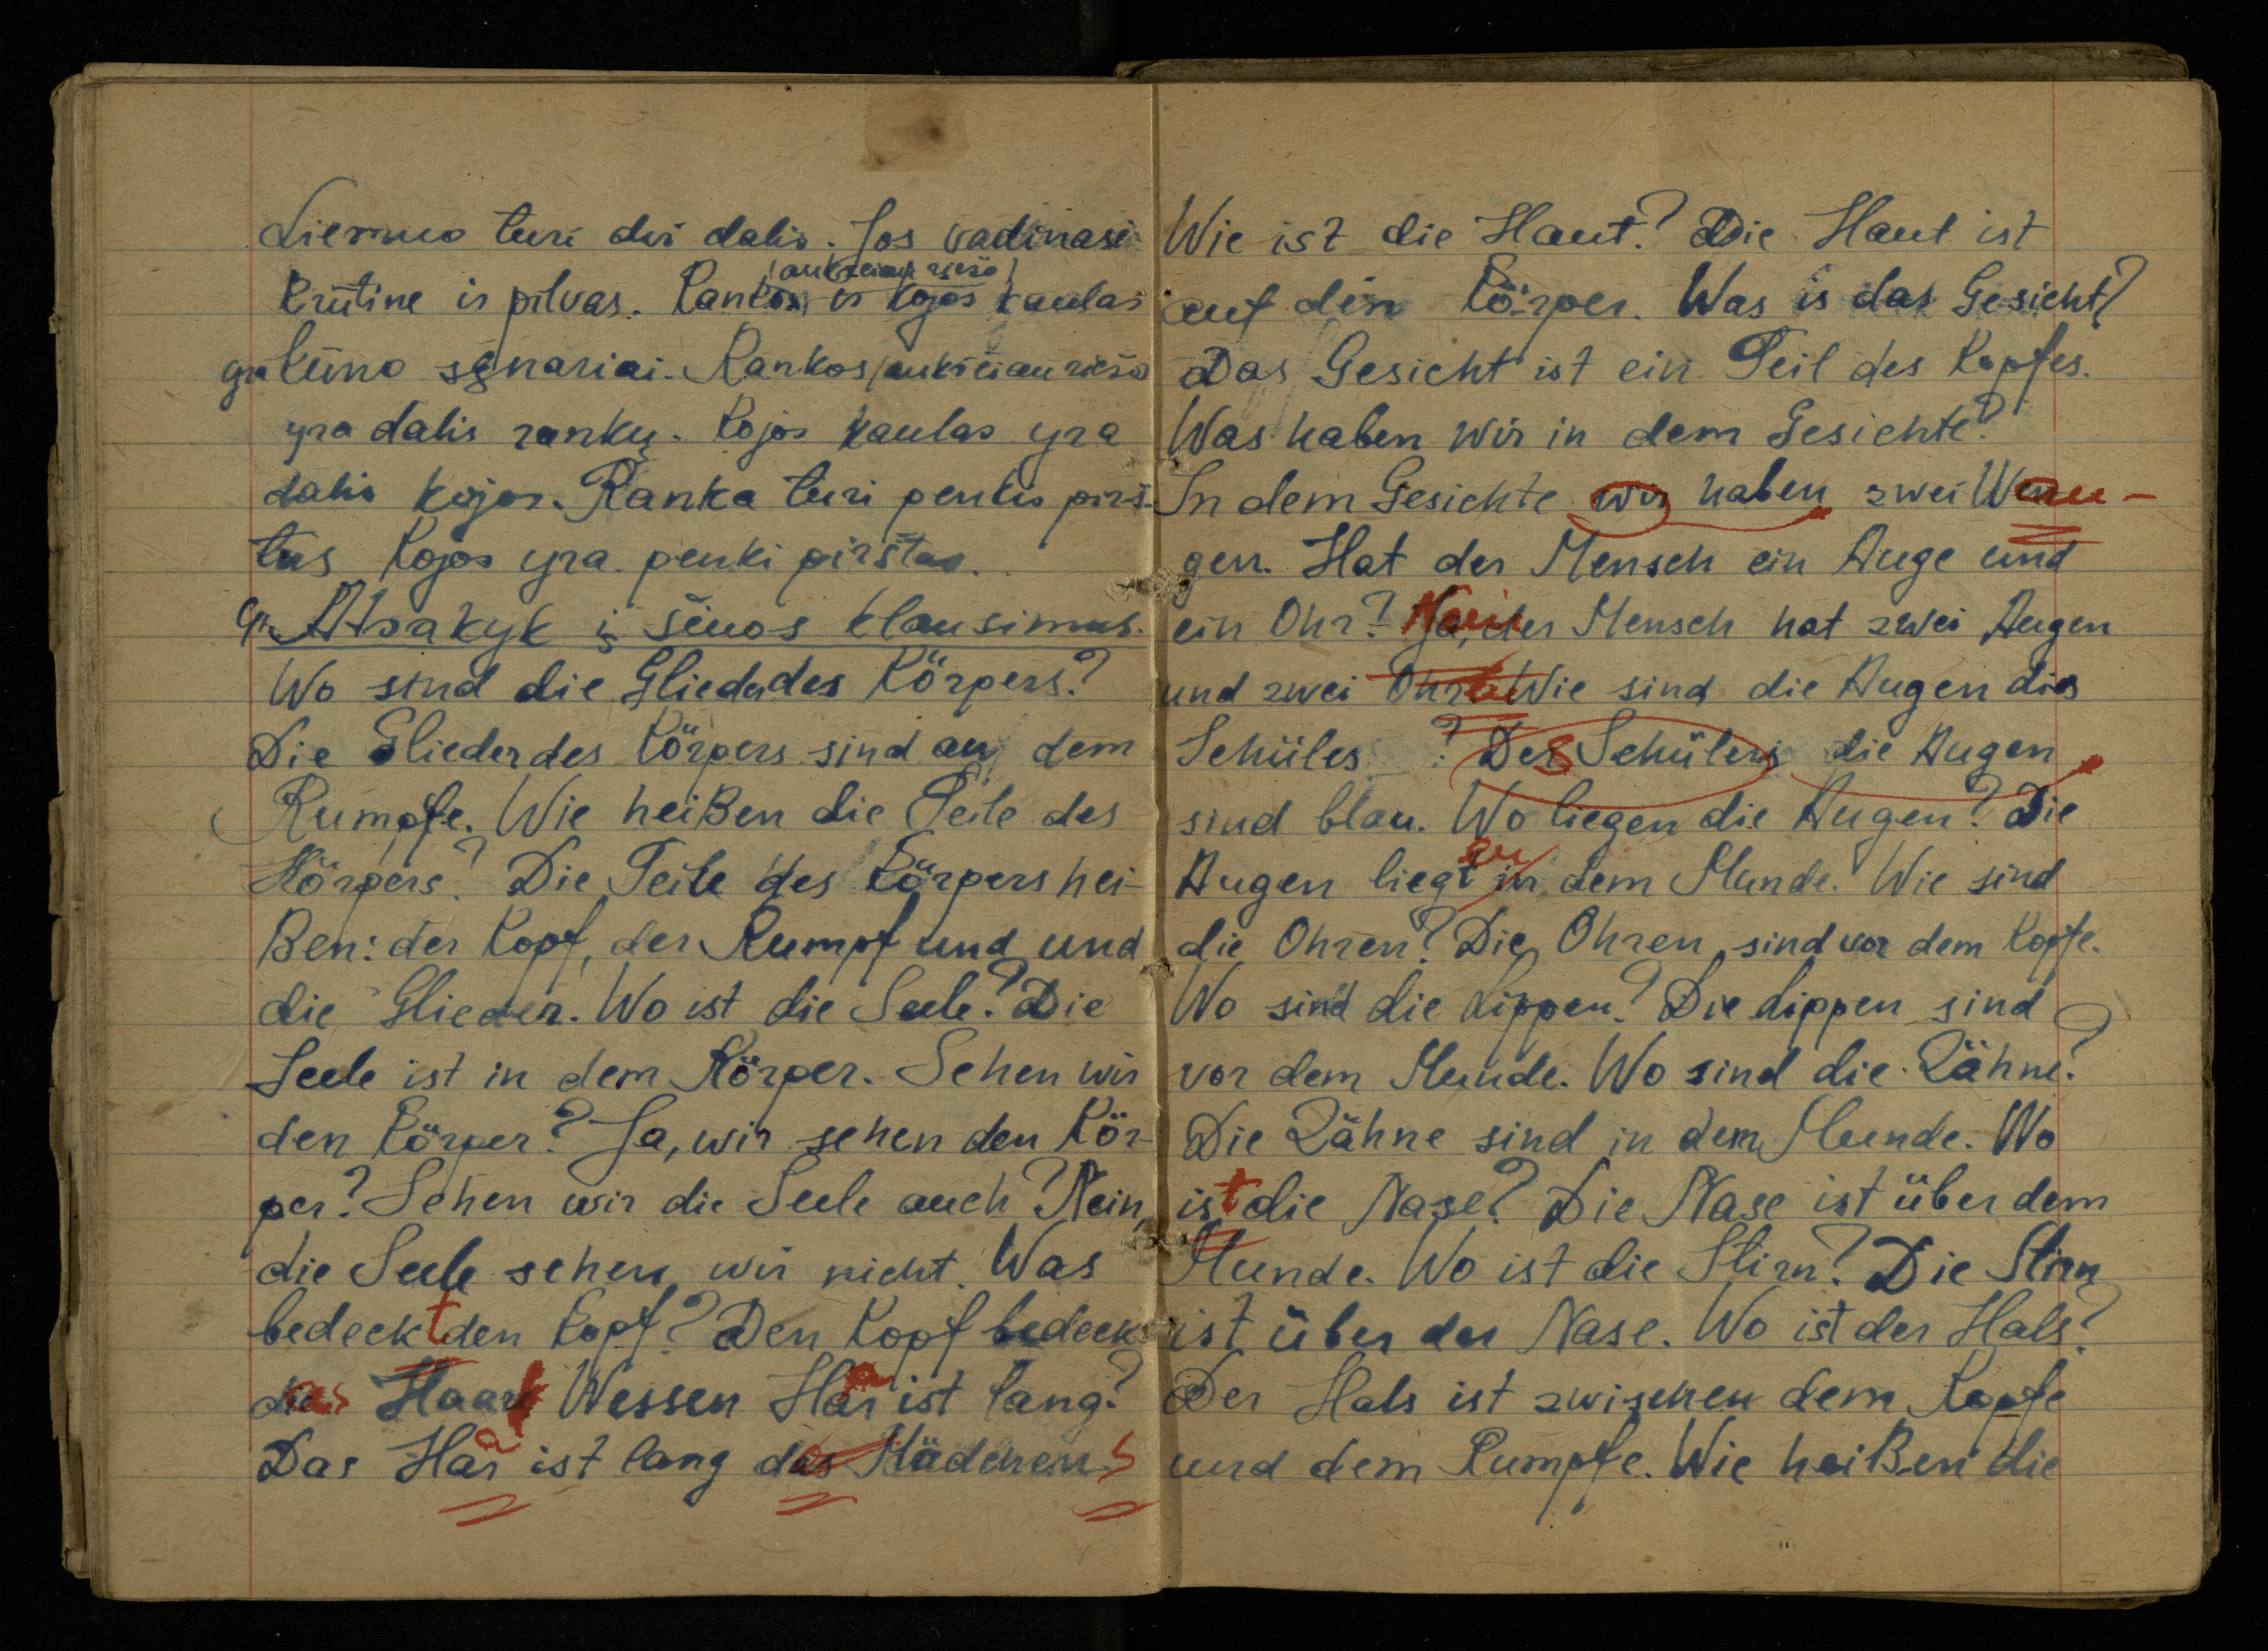 Liemuo turi dvi dalis. Jos vadinasi
krūtine ir pilvas. Rankos ir kojos kaulas
(aukščiau riešo)
yra kūno sąnariai. Rankos (aukščiau riešo)
yra dalis rankų. Kojos kaulas yra
dalis kojos. Ranka turi penkis pirš-
tus Kojos yra penki pirštas.
Atsakyk į šiuos klausimus.
Wo sind die Glieder des Körpers?
Die Glieder des Körpers sind an dem
Rumpfe. Wie heißen die Teile des
Körpers? Die Teile des Körpers hei-
ßen: der Kopf, der Rumpf und und
die Glieder. Wo ist die Seele? Die
Seele ist in dem Körper. Sehen wir
den Körper? Ja, wir sehen den Kör-
per? Sehen wir die Seele auch? Nein,
die Seele sehen wir nicht. Was
bedeckt den Kopf? Den Kopf bedeck
das Haar Wessen Haar ist lang?
Das Haar ist lang des Mädchens
Wie ist die Haut? Die Haut ist
auf dem Körper. Was is das Gesicht?
Das Gesicht ist ein Teil des Kopfes.
Was haben wir in dem Gesichte?
In dem Gesichte wir haben zwei Wan-
gen. Hat der Mensch ein Auge und
ein Ohr? Nein, der Mensch hat zwei Augen
und zwei Ohre Wie sind die Augen des
Schüles ? Des Schülers die Augen
sind blau. Wo liegen die Augen? Die
an
Augen liegt in dem Munde. Wie sind
die Ohren? Die Ohren sind vor dem Kopfe.
Wo sind die Lippen? Die Lippen sind
vor dem Munde. Wo sind die Zähne?
Die Zähne sind in dem Munde. Wo
ist die Nase? Die Nase ist über dem
Munde. Wo ist die Stirn? Die Stirn
ist über der Nase. Wo ist der Hals?
Der Hals ist zwischen dem Kopfe
und dem Rumpfe. Wie heißen die